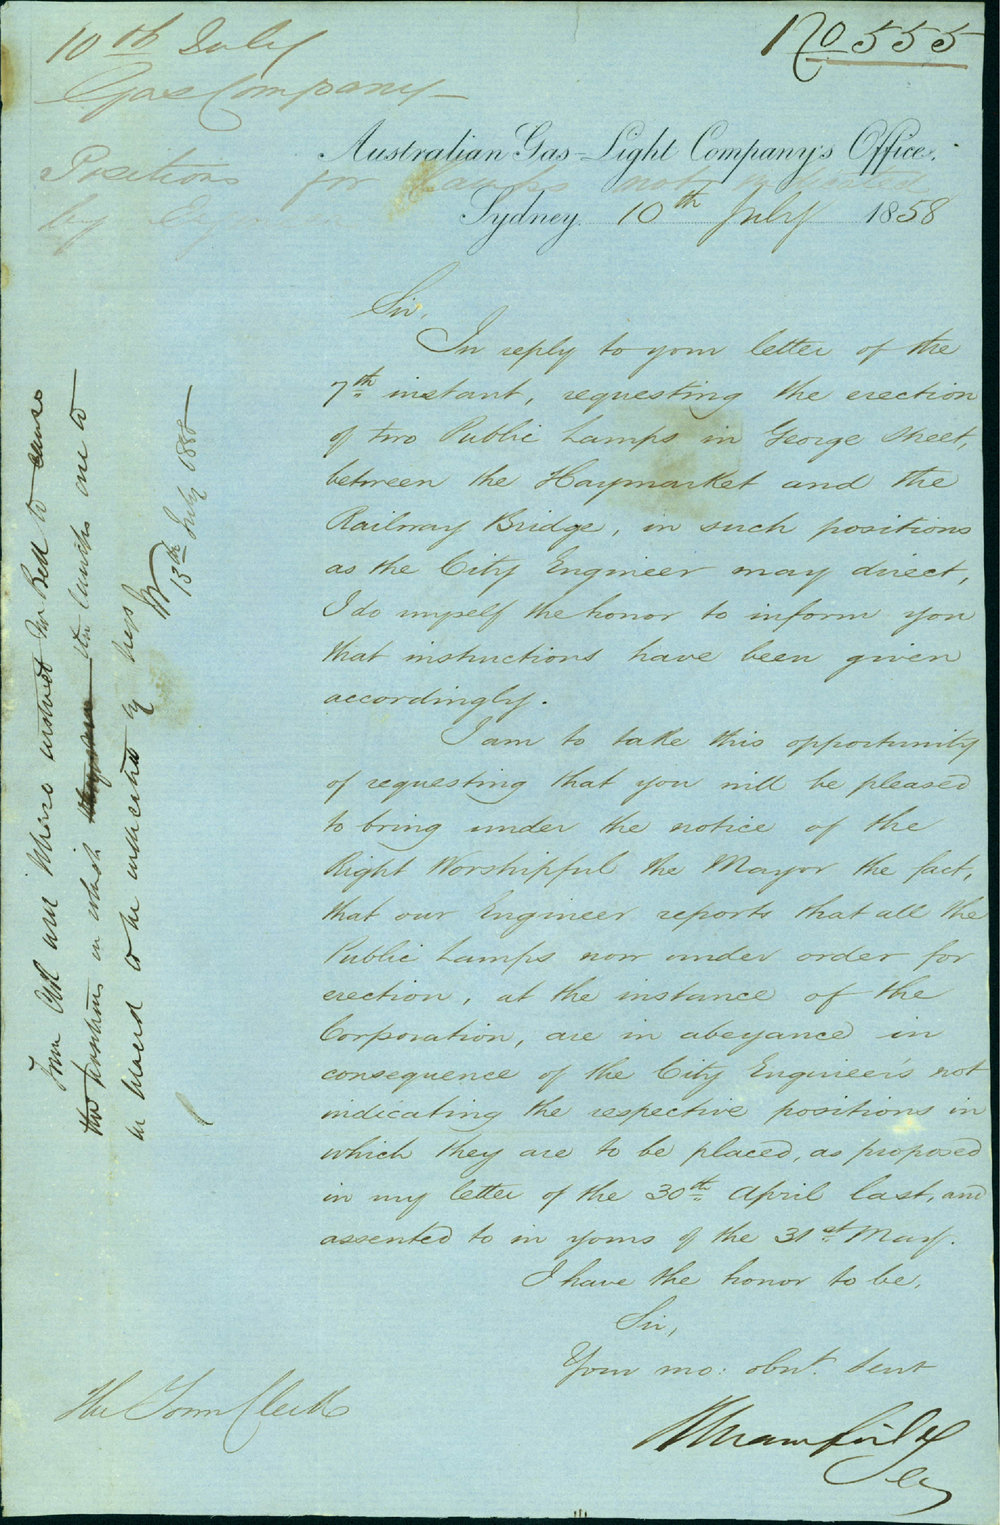 10th July
Gas Company
Positions for Lamps not indicated
by Engineer
No 555
Australian Gas-Light Company's Office.
Sydney 10th July 1858
Sir,
In reply to your letter of the
7th instant, requesting the erection
of two Public Lamps in George Street,
between the Haymarket and the
Railway Bridge, in such positions
as the City Engineer may direct,
I do myself the honor to inform you
that instructions have been given
accordingly.
I am to take this opportunity
of requesting that you will be pleased
to bring under the notice of the
Right Worshipful the Mayor the fact,
that our Engineer reports that all the
Public Lamps now under order for
erection, at the instance of the
Corporation, are in abeyance in
consequence of the City Engineer's not
indicating the respective positions in
which they are to be placed, as proposed
in my letter of the 30th April last, and
assented to in yours of the 31st May.
I have the honor to be,
Sir,
Your mo: obnt. Servt
The Town Clerk
Town Clk will please instruct Mr Bell to cause
the positions in which the lamps are to
be placed to be indicated by
13th July